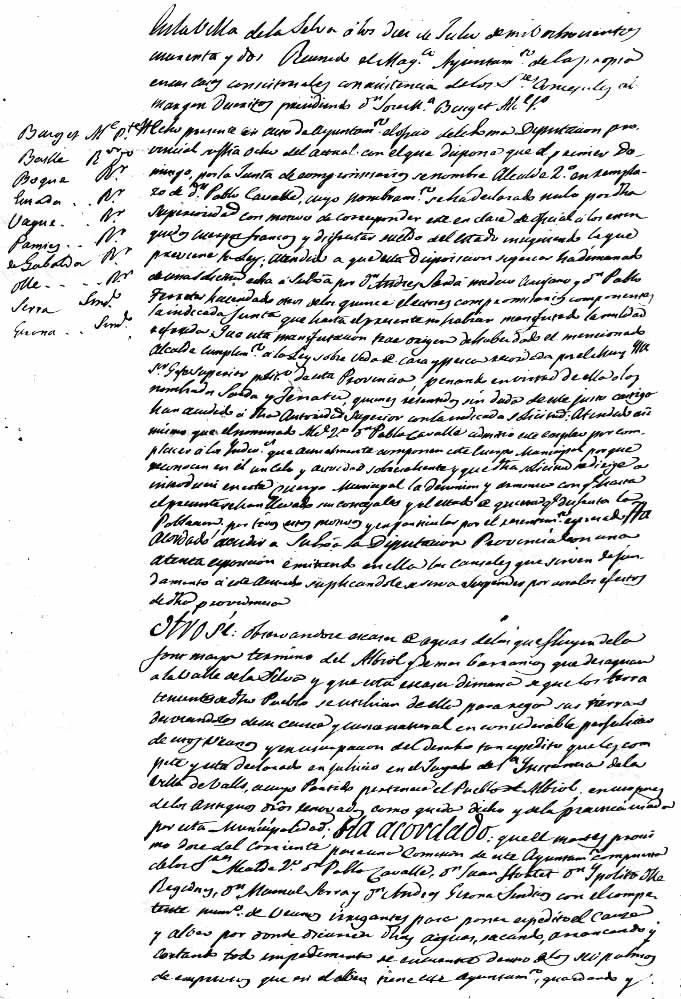 En la Villa de la Selva á los Diez de Julio de mil ochocientos
cuarenta y dos Reunido el Mag.co Ayuntam.to de la propia
en sus casas consistoriales con asistencia de los S.res Concejales al
margen descritos presidiendo D.n Josef M.a Barget Alc.e 1.o
Barget Alc.e P.te
Batlle R.or
Boqué R.r
R.r
Vaque R.r
Pamies R.r
de Gabaldá R.r
Olle R.r
Serra Sind.o
Girona Sind.o
Hecho presente en este Ayuntam.to el oficio de la Exma Diputacion pro-
vincial su fha ocho del actual con el que dispone que el primer Do-
mingo, por la Junta de compromisarios se nombre Alcalde 2.o en reempla-
zo de D.n Pablo Cavallé, cuyo nombram.to se ha declarado nulo por dha
Superioridad con motivo de corresponder este en clase de oficial á los
cuerpos francos y disfrutar sueldo del estado
previene la Ley. Atendido a que esta disposicion superior ha dimanado
de una solicitud echa á Su Exa por D.n Andres Sardá medico cirujano y D.n Pablo
Ferrater hacendado otros de los quince electores compromisarios componentes
la indicada Junta que hasta el presente no habian manifestado la nulidad
referida. Que esta manifestacion trae origen de haber dado el mencionado
Alcalde cumplim.to á la Ley sobre Veda de caza y pesca recordada por el
S.or Gefe Superior polit.co de esta Provincia, penando en virtud de ella á los
nombrados Sardá y Ferrater, quienes resentidos sin duda de este justo castigo
han acudido á dha Autoridad Superior con la indicada solicitud. Atendido asi
mismo que el nombrado Alc.e 2.o D.n Pablo Cavallé admitió ese empleo por com-
placer á los que actualmente componen este Cuerpo Municipal porque
reconocen en él un celo y actividad sobresaliente y que dha solicitud se dirige a
introducir en este cuerpo Municipal la desunion y
el presente se han llevado sus concejales y el estado de que disfruta la
Poblacion, por todos estos motivos y en particular por el Ha
Acordado: acudir a Su Exa la Diputacion Provincial con una
atenta esposicion emitiendo en ella las causales que sirven de fun-
damento á este Acuerdo suplicandole se sirva suspender por ahora los efectos
de dha providencia
Otro Sí: observandose escasez de aguas de las que fluyen de la
font mayor termino del Albiol y demas barrancos que desaguan
a la Valle de la Selva y que esta escasez dimana de que los terra
tenientes de dho Pueblo se utilizan de ella para regar sus tierras
desviandolas de su cauce y curso natural en considerable perjuicio
de estos vecinos y en usurpacion del derecho tan espedito que les com-
pete y esta declarado en juicio en el Juzgado de 1.a Instancia de la
Villa de Valls, a cuyo Partido pertenece el Pueblo de Albiol, en
de los antiguos dros renovados como queda dicho y de la practica usada
por esta Municipalidad; Ha acordado: que el martes proxi-
mo doce del corriente pase una Comision de este Ayuntam.to compuesta
de los S.res Alcalde 2.o D.n Pablo Cavallé, D.n Juan D.n Ypolito Olle
Regidores, D.n Manuel Serra y D.n Andres Girona Sindicos con el compe-
tente num.o de vecinos irrigantes para poner espedito el Cauce
y albeo por donde discurren dhas aguas, sacando, arrancando y
cortando todo impedimento se encuentre dentro de los seis palmos
de que en el albeo tiene este Ayuntam.to, guardando y